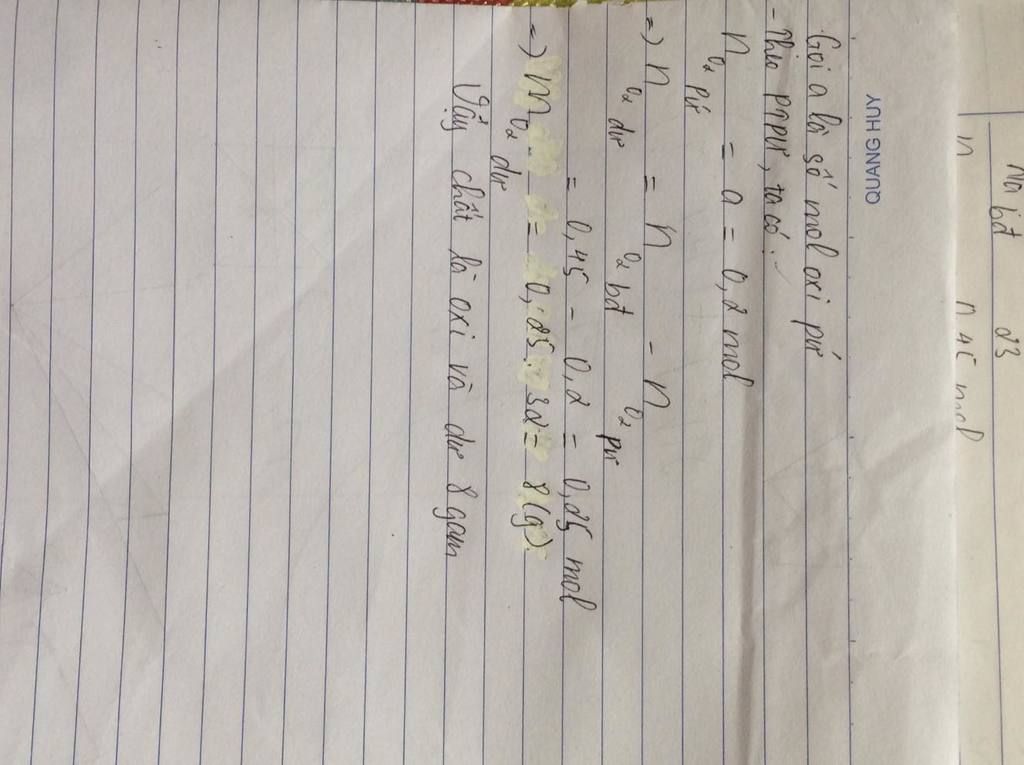 Na bđ 23
n 0,45 mol
QUANG HUY
Gọi a là số mol oxi pứ
- Theo ptpư, ta có:
n O₂ pứ = a = 0,2 mol
=) n O₂ dư = n O₂ bđ - n O₂ pư
= 0,45 - 0,2 = 0,25 mol
=) m O₂ dư = 0,25 . 32 = 8 (g).
Vậy chất là oxi và dư 8 gam